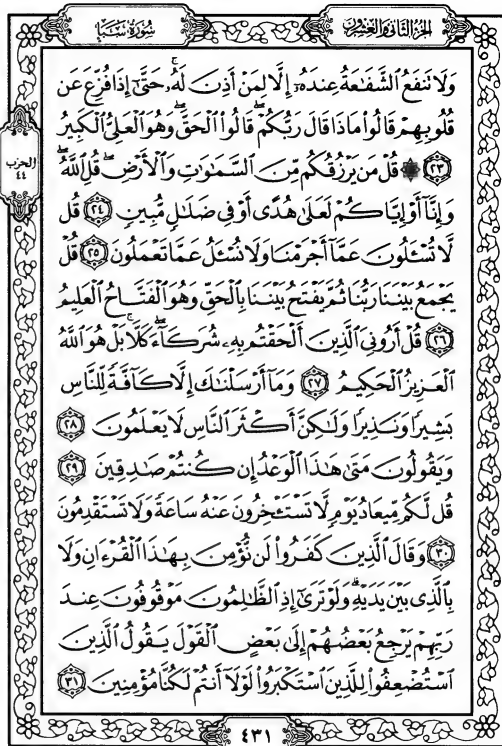 سُورَةُ سَبَإٍ
الجُزْءُ الثَّانِي وَالعِشْرُونَ
وَلَا تَنفَعُ ٱلشَّفَٰعَةُ عِندَهُۥٓ إِلَّا لِمَنْ أَذِنَ لَهُۥ ۚ حَتَّىٰٓ إِذَا فُزِّعَ عَن
قُلُوبِهِمْ قَالُوا۟ مَاذَا قَالَ رَبُّكُمْ ۖ قَالُوا۟ ٱلْحَقَّ ۖ وَهُوَ ٱلْعَلِىُّ ٱلْكَبِيرُ
الحزب
٤٤
﴿٢٣﴾ ۞ قُلْ مَن يَرْزُقُكُم مِّنَ ٱلسَّمَٰوَٰتِ وَٱلْأَرْضِ ۖ قُلِ ٱللَّهُ ۖ
وَإِنَّآ أَوْ إِيَّاكُمْ لَعَلَىٰ هُدًى أَوْ فِى ضَلَٰلٍ مُّبِينٍ ﴿٢٤﴾ قُل
لَّا تُسْـَٔلُونَ عَمَّآ أَجْرَمْنَا وَلَا نُسْـَٔلُ عَمَّا تَعْمَلُونَ ﴿٢٥﴾ قُلْ
يَجْمَعُ بَيْنَنَا رَبُّنَا ثُمَّ يَفْتَحُ بَيْنَنَا بِٱلْحَقِّ وَهُوَ ٱلْفَتَّاحُ ٱلْعَلِيمُ
﴿٢٦﴾ قُلْ أَرُونِىَ ٱلَّذِينَ أَلْحَقْتُم بِهِۦ شُرَكَآءَ ۖ كَلَّا ۚ بَلْ هُوَ ٱللَّهُ
ٱلْعَزِيزُ ٱلْحَكِيمُ ﴿٢٧﴾ وَمَآ أَرْسَلْنَٰكَ إِلَّا كَآفَّةً لِّلنَّاسِ
بَشِيرًا وَنَذِيرًا وَلَٰكِنَّ أَكْثَرَ ٱلنَّاسِ لَا يَعْلَمُونَ ﴿٢٨﴾
وَيَقُولُونَ مَتَىٰ هَٰذَا ٱلْوَعْدُ إِن كُنتُمْ صَٰدِقِينَ ﴿٢٩﴾
قُل لَّكُم مِّيعَادُ يَوْمٍ لَّا تَسْتَـْٔخِرُونَ عَنْهُ سَاعَةً وَلَا تَسْتَقْدِمُونَ
﴿٣٠﴾ وَقَالَ ٱلَّذِينَ كَفَرُوا۟ لَن نُّؤْمِنَ بِهَٰذَا ٱلْقُرْءَانِ وَلَا
بِٱلَّذِى بَيْنَ يَدَيْهِ ۗ وَلَوْ تَرَىٰٓ إِذِ ٱلظَّٰلِمُونَ مَوْقُوفُونَ عِندَ
رَبِّهِمْ يَرْجِعُ بَعْضُهُمْ إِلَىٰ بَعْضٍ ٱلْقَوْلَ يَقُولُ ٱلَّذِينَ
ٱسْتُضْعِفُوا۟ لِلَّذِينَ ٱسْتَكْبَرُوا۟ لَوْلَآ أَنتُمْ لَكُنَّا مُؤْمِنِينَ ﴿٣١﴾
٤٣١